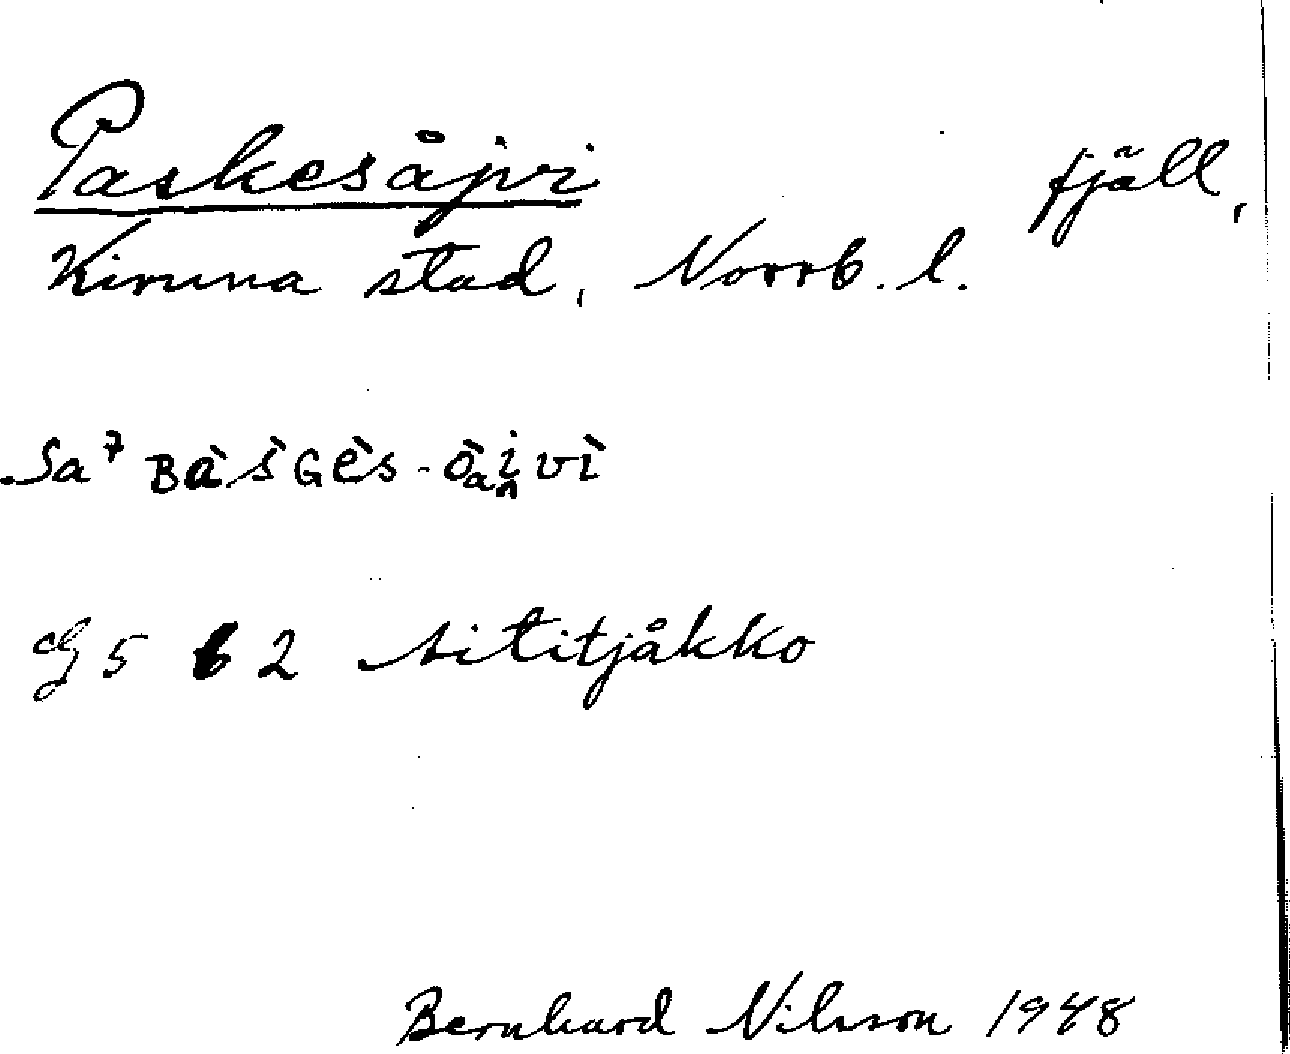 Paskesåjvi fjäll,
Kiruna stad, Norrb. l.
Sa 7 Bàs̀Gès-òai̯vì
Cg 5 6 2 Sititjåkko
Bernhard Nilsson 1948